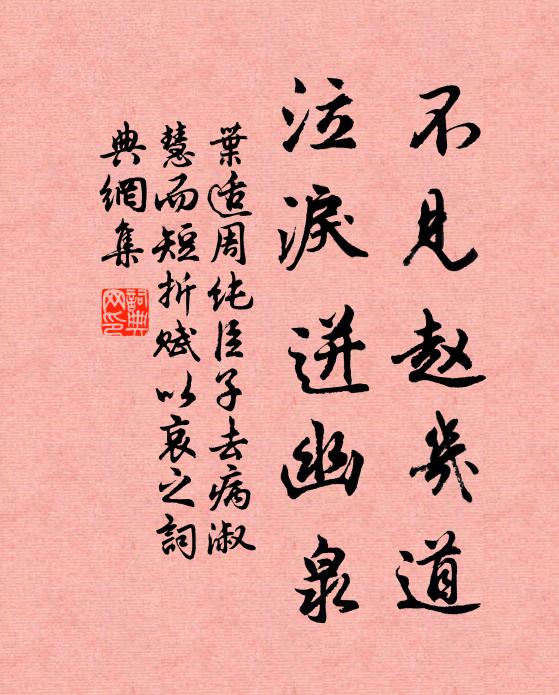 不見赵幾道
泣淚迸幽泉
葉适周純臣子去病淑
慧而短折賦以哀之詞
典網集
詞典网印